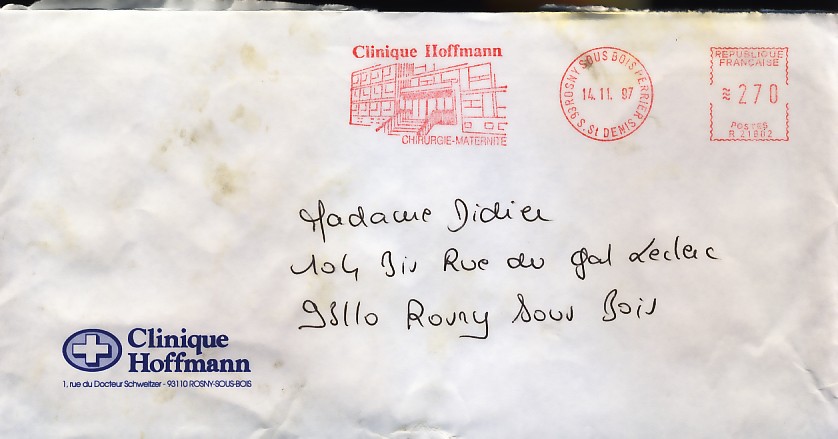 Clinique Hoffmann
CHIRURGIE-MATERNITE
93 ROSNY SOUS BOIS PERRIER
14.11.97
S. St DENIS
REPUBLIQUE
FRANCAISE
270
POSTES
R 21802
Madame Didier
104 Bis Rue du Gal Leclerc
93110 Rosny Sous Bois
Clinique
Hoffmann
1, rue du Docteur Schweitzer - 93110 ROSNY-SOUS-BOIS